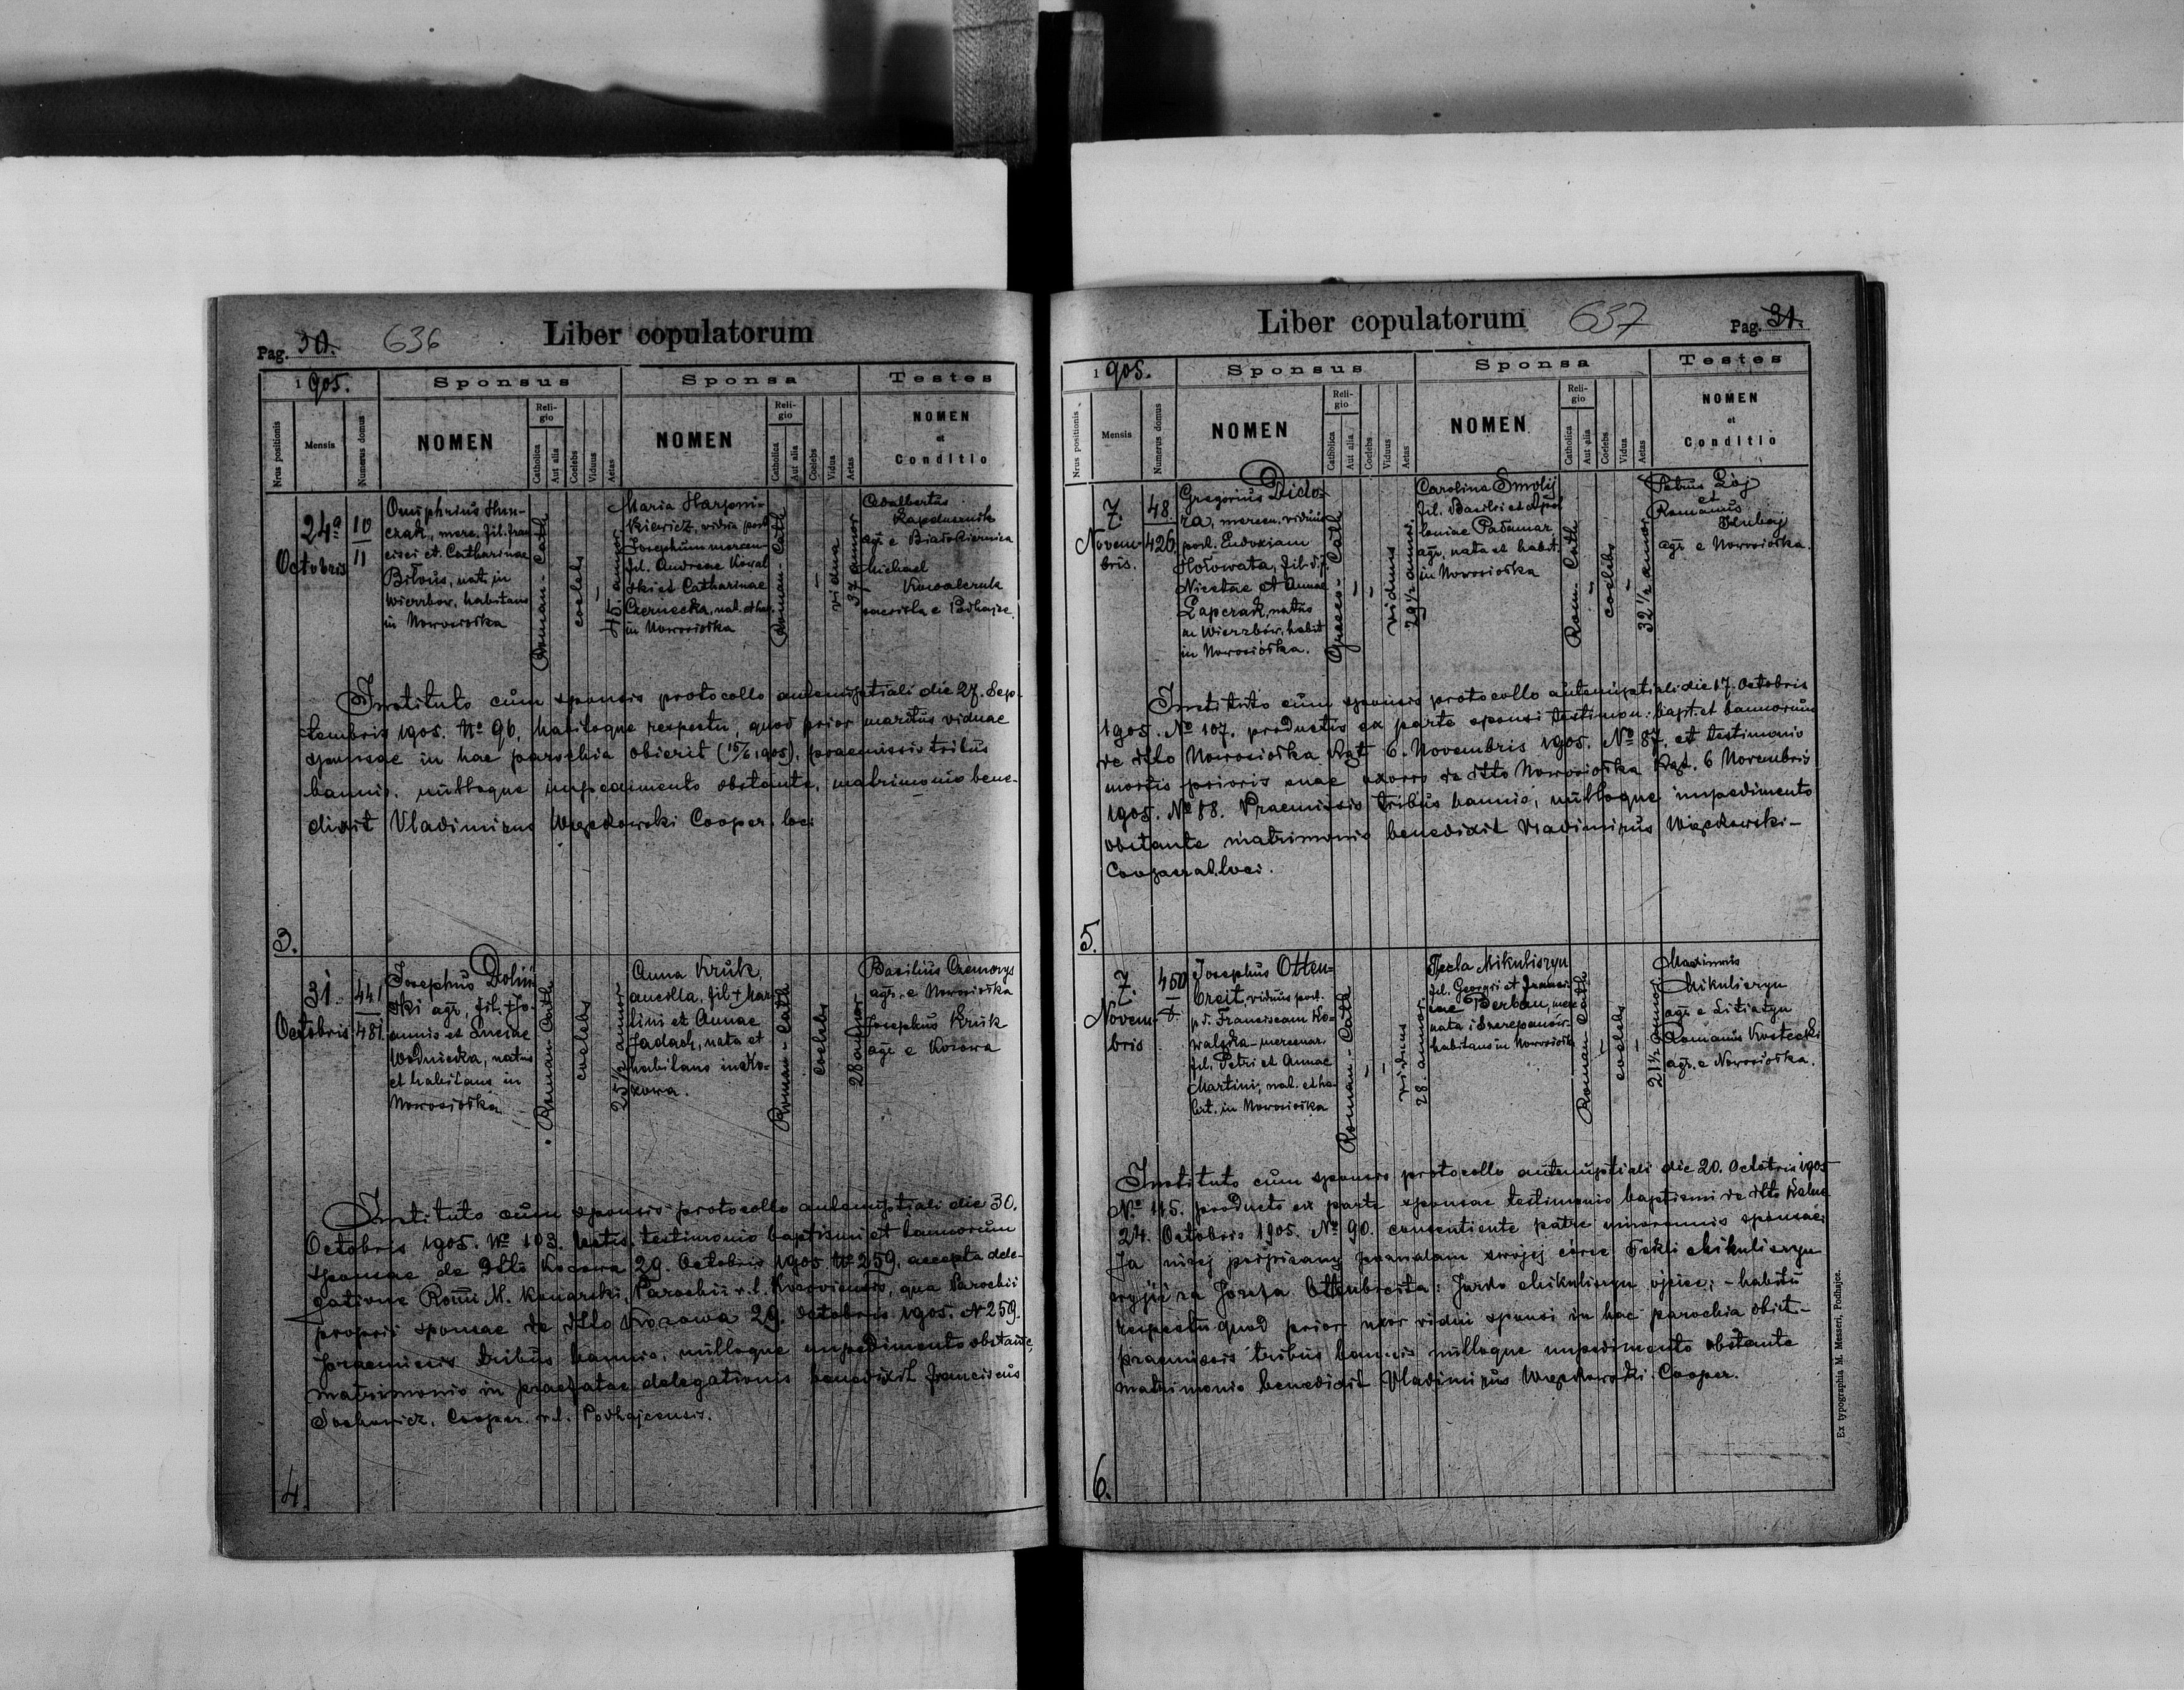 Pag. 30. 636 Liber copulatorum
1905. Sponsus Sponsa Testes
Nrus positionis
Mensis
Numerus domus
NOMEN
Religio
Catholica
Aut alia
Coelebs
Viduus
Aetas
NOMEN
Religio
Catholica
Aut alia
Coelebs
Vidua
Aetas
NOMEN
et
Conditio
24a
Octobris
10
11
Onuphrius
czak, merc. fil.
cisci et Catharinae
Bilous, nat. in
Wierzbow, habitans
in Nowosiołka
Roman-Cath
coelebs
45. annor.
Maria
kiewicz, vidua post
Josephum mercen-
fil. Andreae Kowal
ski et Catharinae
Czernecka, nat. et hab.
in Nowosiołka
Roman-Cath
vidua
37 annor
Adalbertus
agr. e Białokiernica
Michael
Kowalczuk
e Podhajce
Instituto cum sponsis protocollo antenuptiali die 27. Sep-
tembris 1905. No 96, habitoque respectu, quod prior maritus viduae
sponsae in hac parochia obierit (15/6 1905), praemissis tribus
bannis, nulloque impedimento obstante, matrimonio bene-
dixit Vladimirus Cooper. loci
3.
31.
Octobris
441
481
Josephus Doliń
ski agr. fil. + Jo-
annis et Luciae
Wodniecka, natus
et habitans in
Nowosiołka
Roman-Cath
coelebs
25 1/2 annor
Anna Kruk,
ancilla, fil + Mar
tini et Annae
Jadach, nata et
habitans in Ko-
zowa.
Roman-Cath
coelebs
28 annor
Basilius
agr. e Nowosiołka
Josephus Kruk
agr. e Kozowa
Instituto cum sponsis protocollo antenuptiali die 30.
Octobris 1905. No 103. testimonio baptismi et bannorum
sponsae de dtto Kozowa 29. Octobris 1905. No 259. accepta dele-
gatione Romi M. Konarski, Parochii r. l. Kozoviensis, qua Parochii
proprii sponsae de dtto Kozowa 29. Octobris 1905. N 259.
praemissis tribus bannis, nulloque impedimento obstante,
matrimonio in praefatae delegationis benedixit Franciscus
Sochowicz, Cooper. r. l. Podhajcensis.
4.
Liber copulatorum 637 Pag. 31.
1905. Sponsus Sponsa Testes
Nrus positionis
Mensis
Numerus domus
NOMEN
Religio
Catholica
Aut alia
Coelebs
Viduus
Aetas
NOMEN
Religio
Catholica
Aut alia
Coelebs
Vidua
Aetas
NOMEN
et
Conditio
7.
Novem-
bris.
48.
426.
Gregorius Dido-
ra, mercen. viduus
post. Eudoxiam
Hołowata, fil.
Nicetae et Annae
Łapczak, natus
in Wierzbów, habit
in Nowosiołka.
Graeco-Cath
viduus
29 1/2 annor.
Carolina Smolij
fil. Basilii et Apol
loniae Padamar
agr. nata et habit.
in Nowosiołka
Rom. Cath
coelebs
32 1/2 annor
Petrus Łoj
et
Romanus
agr. e Nowosiołka.
Instituto cum sponsis protocollo antenuptiali die 17. Octobris
1905. No 107. productis ex parte sponsi testimon: bapt. et bannorum
de dtto Nowosiołka Rgt 6. Novembris 1905. No 87. et testimonio
mortis prioris suae uxoris de dtto Nowosiołka Rgt. 6 Novembris
1905. No 88. Praemissis tribus bannis, nulloque impedimento
obstante matrimonio benedixit Vladimirus
Cooperat. loci.
5.
7.
Novem-
bris
450
Josephus Otten-
breit, viduus post.
Franciscam Ko-
walska - mercenar.
fil. Petri et Annae
Martini, nat. et ha-
bit. in Nowosiołka
Roman-Cath
viduus
28. annor.
Tecla Mikuliszyn
fil. Georgii et Franci-
cae Berban, merc
nata i Szczepanów
habitans in Nowosiołka
Roman-Cath
coelebs
21 1/2 annor.
Maximus
Mikuliszyn
agr. e Litiatyn
Romanus Kostecki
agr. e Nowosiołka.
Instituto cum sponsis protocollo antenuptiali die 20. Octobris 1905
No. 115. producto ex parte sponsae testimonio baptismi de dtto
24. Octobris 1905. No 90. consentiente patre minorennis sponsae:
Ja niżej pozwalam swojej córce Tekli Mikuliszyn
wyjść za Józefa Ottenbreita: Jurko Mikuliszyn ojciec; - habitu
respectu quod prior uxor vidui sponsi in hac parochia obiit. -
praemissis tribus bannis nulloque impedimento obstante
matrimonio benedixit Vladimirus Cooper.
6.
Ex typographia M. Messeri, Podhajce.